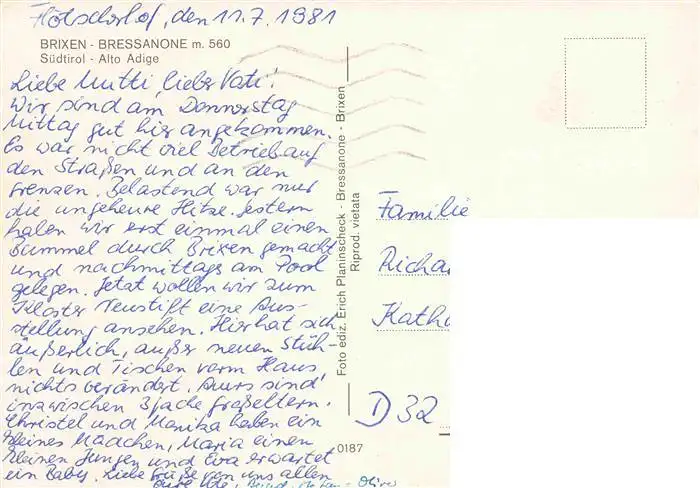 Flötscherhof, den 11.7.1981
BRIXEN - BRESSANONE m. 560
Südtirol - Alto Adige
Liebe Mutti, lieber Vati!
Wir sind am Donnerstag
Mittag gut hier angekommen.
Es war nicht viel Betrieb auf
den Straßen und an den
Grenzen. Belastend war nur
die ungeheure Hitze. Gestern
haben wir erst einmal einen
Bummel durch Brixen gemacht
und nachmittags am Pool
gelegen. Jetzt wollen wir zum
Kloster Neustift eine Aus-
stellung ansehen. Hier hat sich
äußerlich, außer neuen Stüh-
len und Tischen vorm Haus,
nichts verändert. Aurs sind
inzwischen 3fache Großeltern.
Christel und Monika haben ein
kleines Mädchen, Maria einen
kleinen Jungen und Eva erwartet
ein Baby. Liebe Grüße von uns allen
Eure Ute, Bernd, Stefan - Oliver
Foto ediz. Erich Planinscheck - Bressanone - Brixen
Riprod. vietata
0187
Familie
Richa
Kathu
D 32